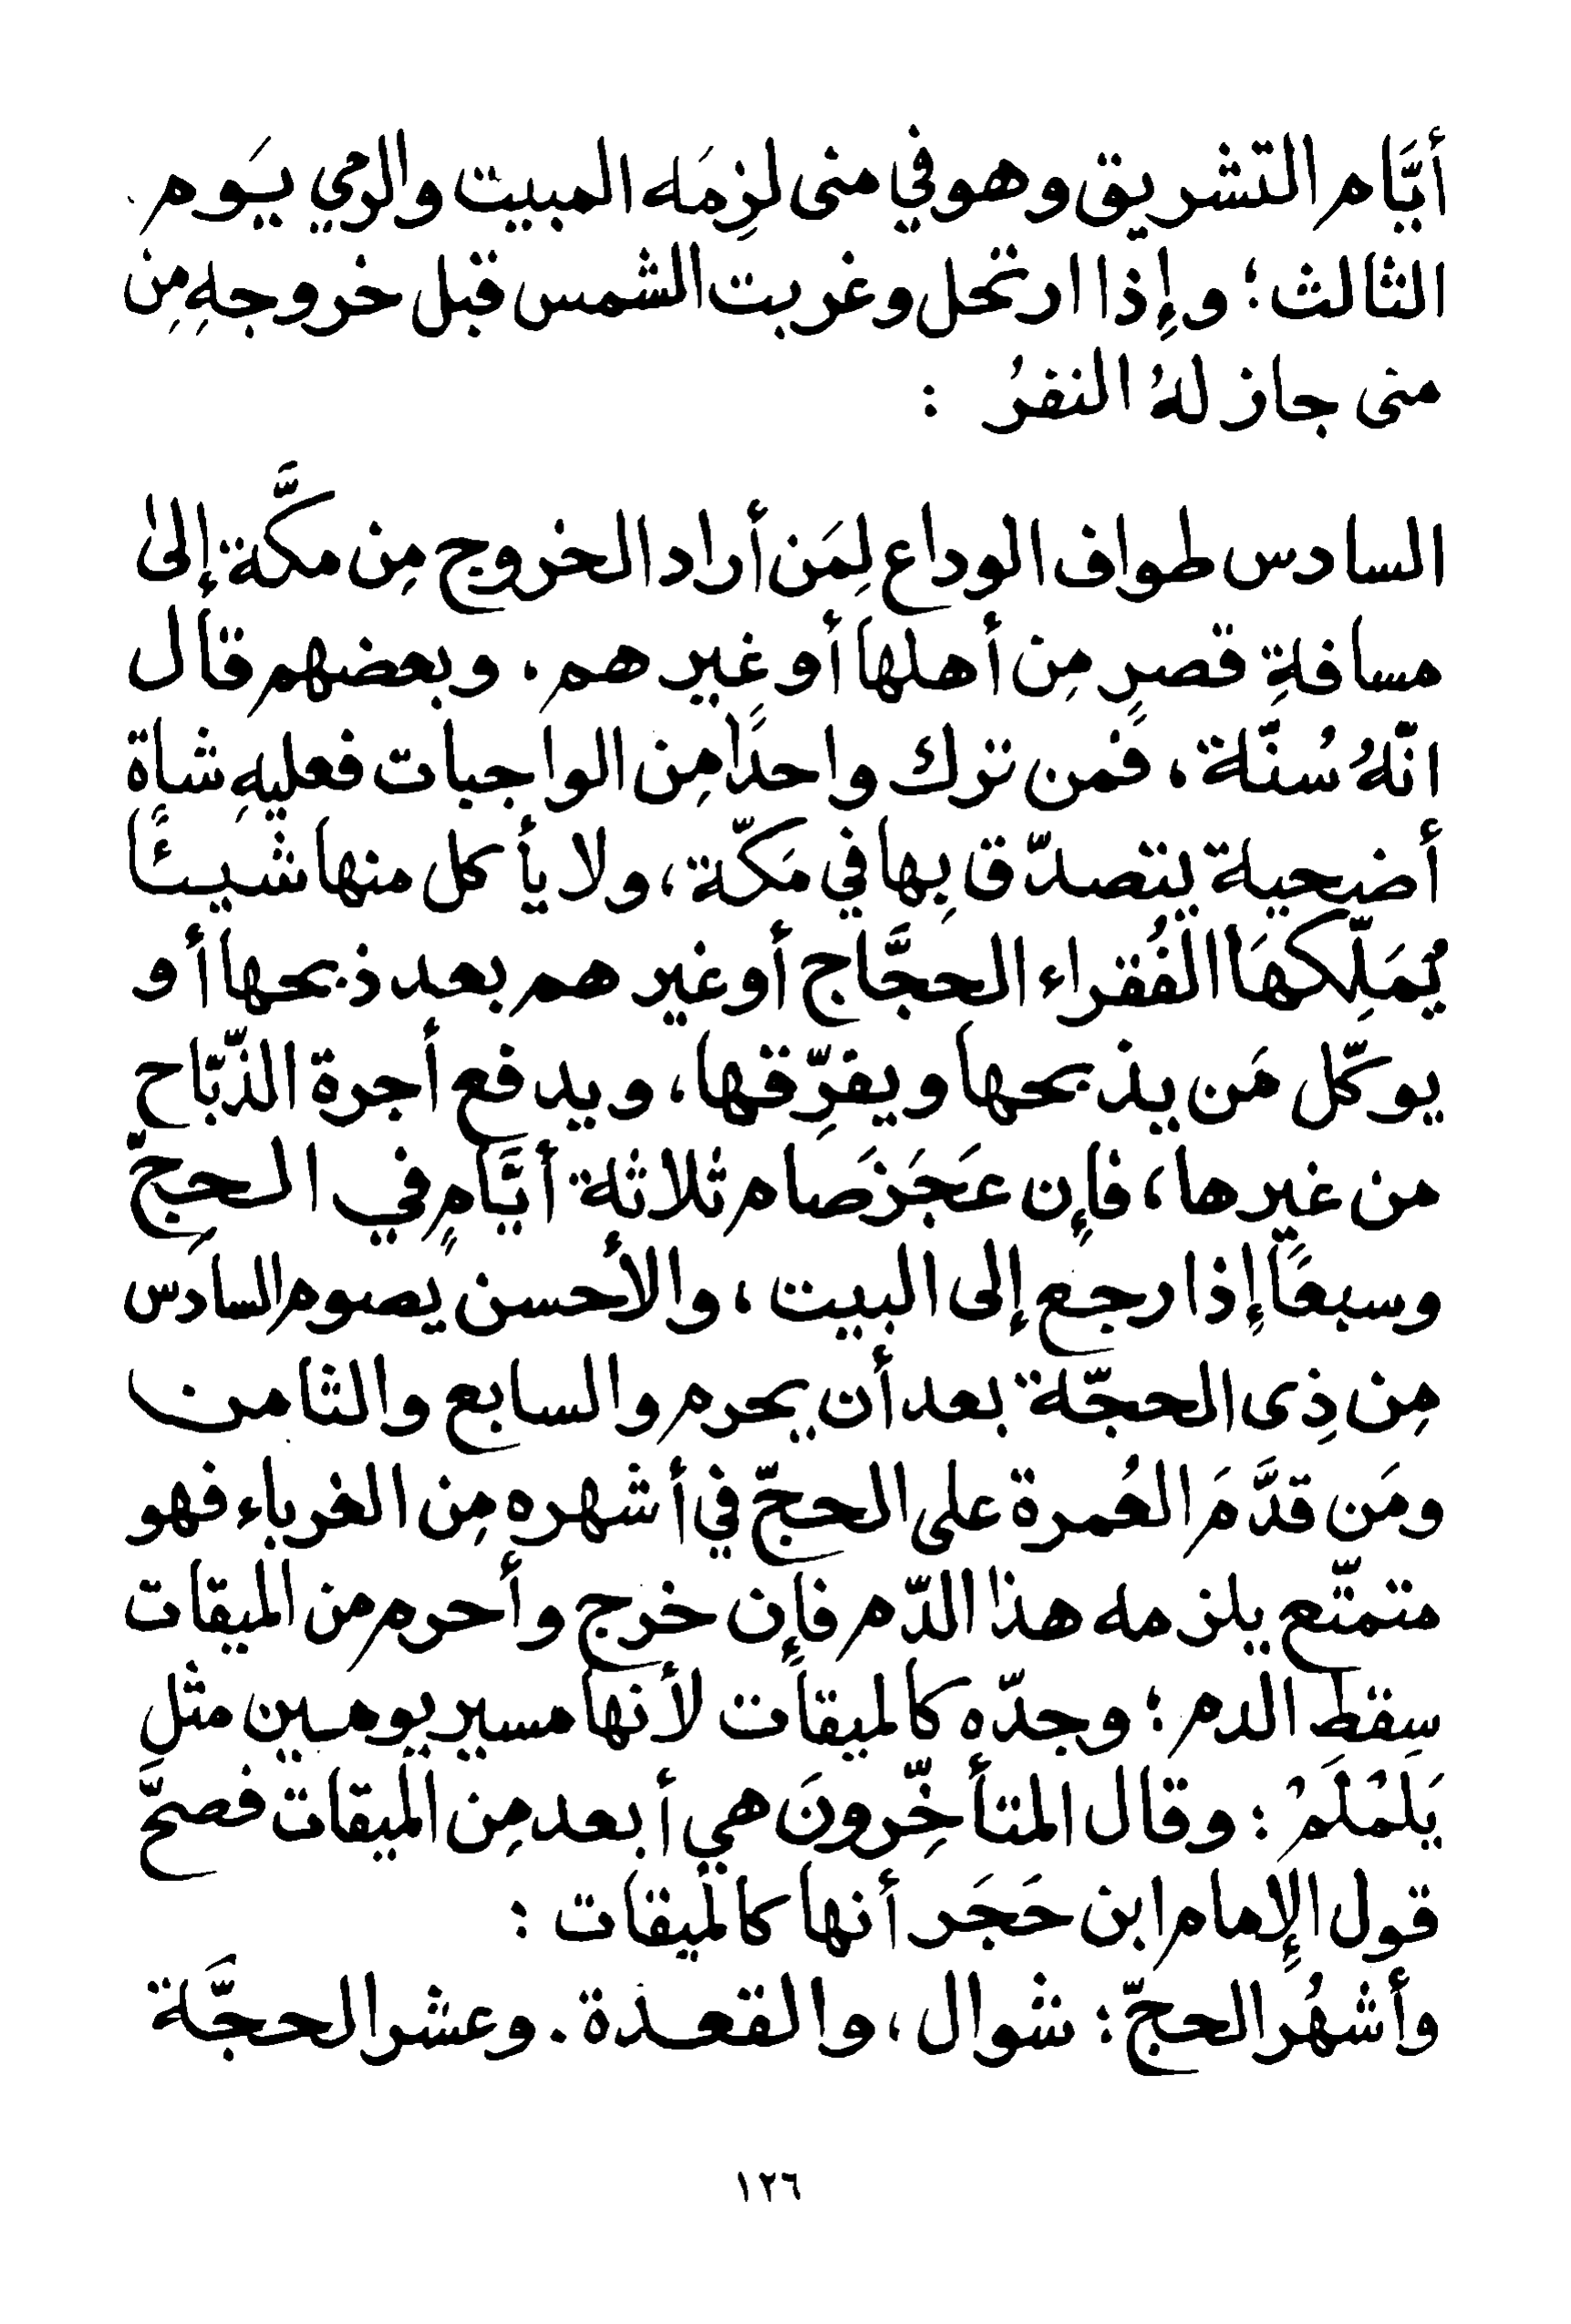 أيَّام التشريق وهو في منى لزِمَه المبيت والرمي يَوم
الثالث؛ وإِذا ارتحل وغربت الشمس قبل خروجهِ مِن
منى جاز لهُ النفرُ :
السادس طواف الوداع لِمَن أراد الخروج مِن مكَّة إلىٰ
مسافةِ قصرٍ مِن أهلها أو غيرهم. وبعضهم قال
انّهُ سُنّة، فمن ترك واحدًا مِن الواجبات فعليهِ شاة
أضحية يتصدّق بِها في مَكّة، ولا يأكل منها شَيئًا
يُمَلِّكهَا الفُقراء الحجَّاج أو غيرهم بعد ذبحها أو
يوكّل مَن يذبحها ويفرِّقها، ويدفع أجرة الذّبّاح
من غيرها، فإِن عَجَزَ صَام ثلاثة أيَّامٍ في الحجّ
وسبعًا إِذا رجع إلى البيت، والأحسن يصوم السادس
مِن ذِى الحجّة بعد أن يحرم والسابع والثامن
ومَن قدَّمَ العُمرة على الحجّ في أشهره مِن الغرباء فهو
متمتّع يلزمه هذا الدّم فإِن خرج وأحرم من الميقات
سقط الدم؛ وجدّه كالميقات لأنها مسير يومين مثل
يَلَمْلَمْ؛ وقال المتأخِّرونَ هي أبعد مِن الميقات فصحَّ
قول الإِمام ابن حَجَر أنها كالميقات :
وأشهُر الحجّ: شوال، والقعدة. وعشر الحجَّة
١٢٦